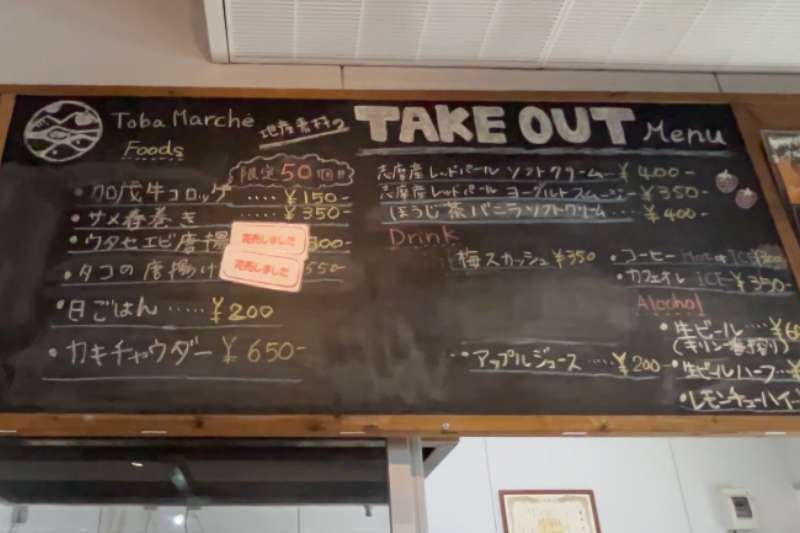 Toba Marché
Foods
地産素材の
TAKE OUT Menu
限定50個!!
・加茂牛コロッケ ‥‥ ¥150-
・サメ春巻き ‥‥ ¥350-
・ウタセエビ唐揚 300-
完売しました
・タコの唐揚げ 550-
完売しました
・白ごはん ‥‥‥ ¥200
・カキチャウダー ¥650-
志摩産レッドパール ソフトクリーム ¥400-
志摩産レッドパール ヨーグルトスムージー ¥350-
ほうじ茶バニラソフトクリーム ¥400-
Drink
梅スカッシュ ¥350
・コーヒー Hot or ICE
・カフェオレ ICE ¥350-
・アップルジュース ‥‥ ¥200-
Alcohol
・生ビール ‥‥ ¥
(キリン一番搾り)
・生ビールハーフ
・レモンチューハイ